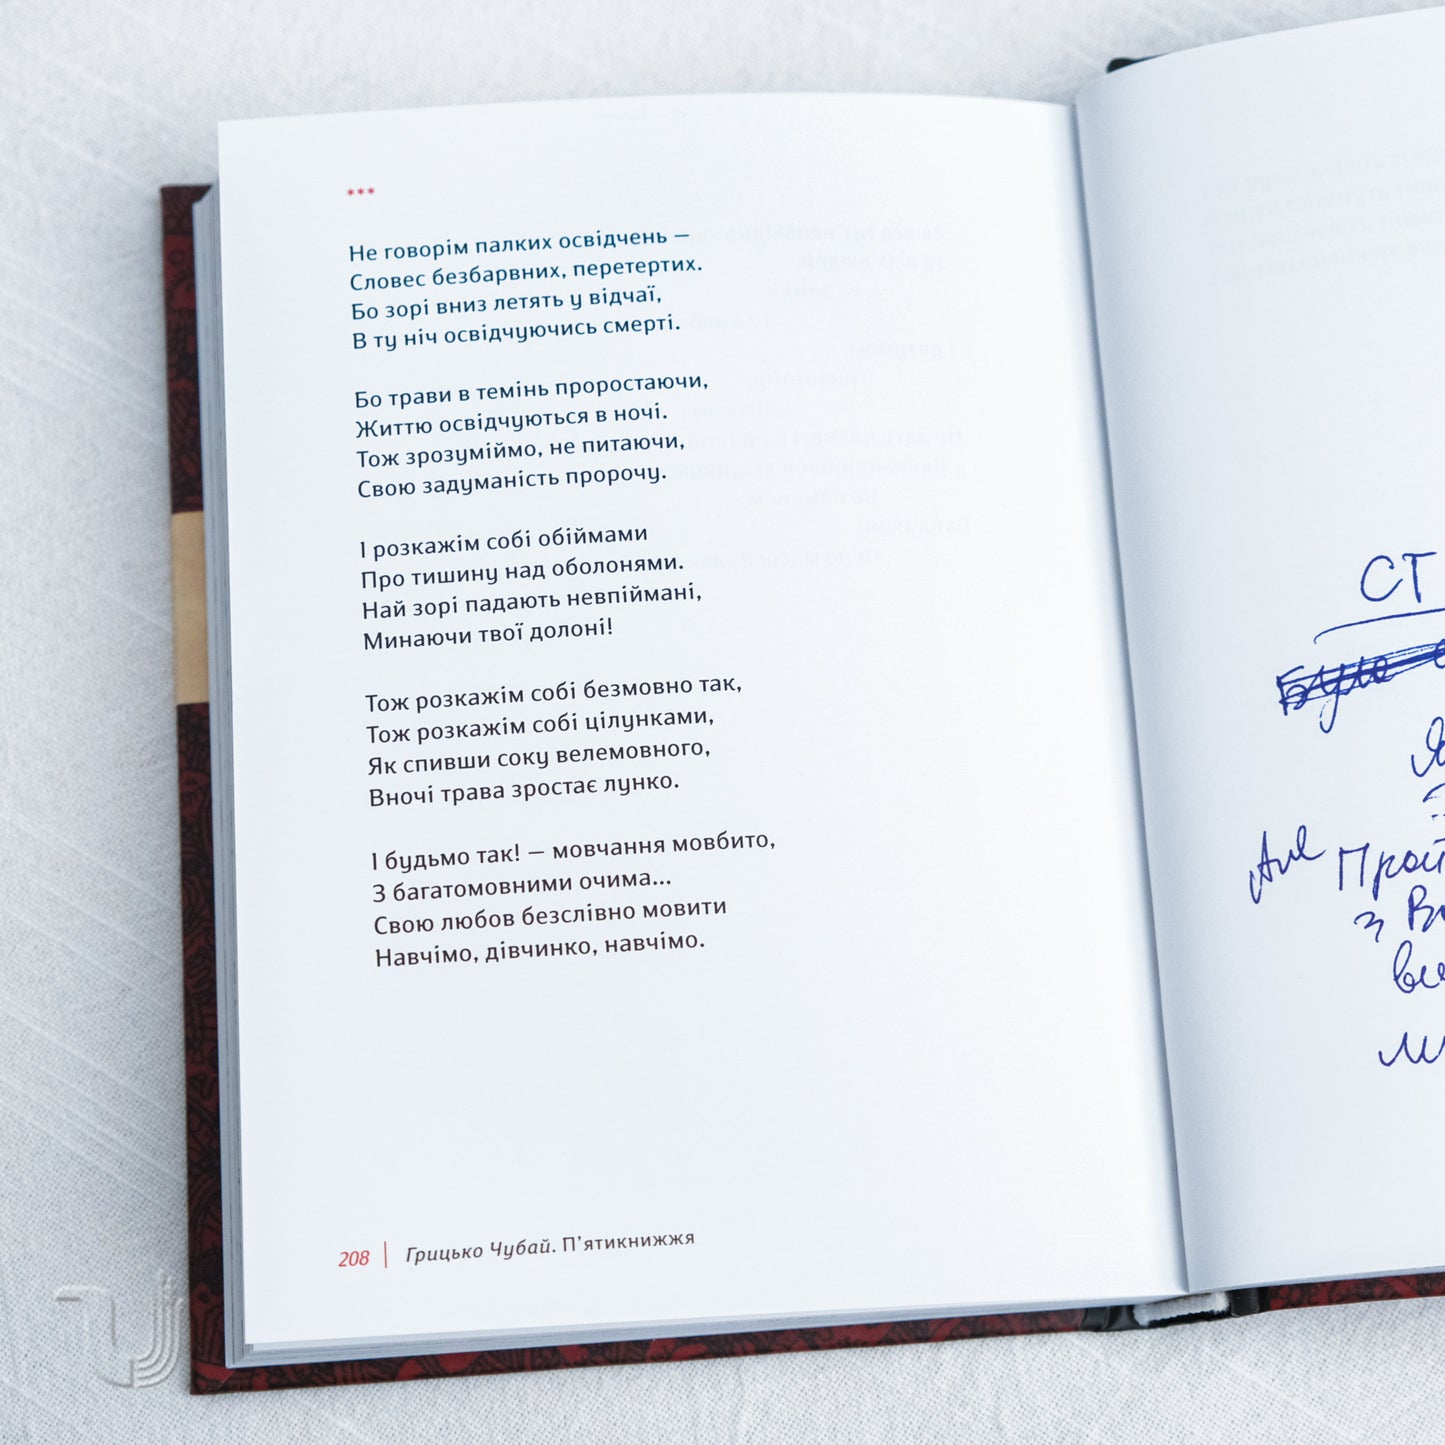 ***
Не говорім палких освідчень —
Словес безбарвних, перетертих.
Бо зорі вниз летять у відчаї,
В ту ніч освідчуючись смерті.
Бо трави в темінь проростаючи,
Життю освідчуються в ночі.
Тож зрозуміймо, не питаючи,
Свою задуманість пророчу.
І розкажім собі обіймами
Про тишину над оболонями.
Най зорі падають невпіймані,
Минаючи твої долоні!
Тож розкажім собі безмовно так,
Тож розкажім собі цілунками,
Як спивши соку велемовного,
Вночі трава зростає лунко.
І будьмо так! — мовчання мовбито,
З багатомовними очима...
Свою любов безслівно мовити
Навчімо, дівчинко, навчімо.
208 | Грицько Чубай. П'ятикнижжя
СТ
Але Прой
з